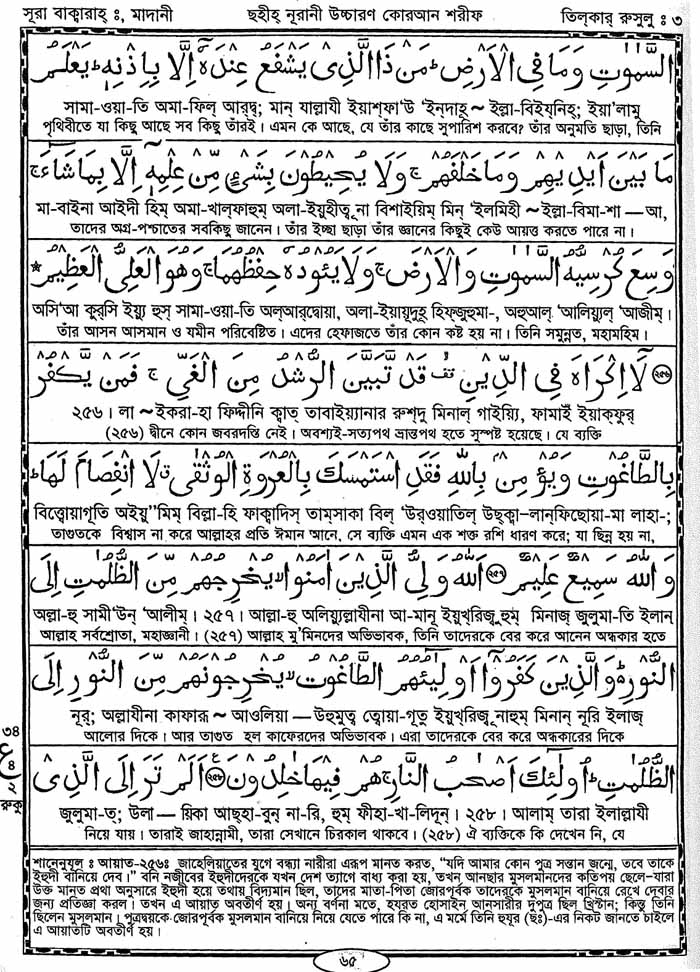 সূরা বাক্বারাহ্ ঃ, মাদানী ছহীহ্ নূরানী উচ্চারণ কোরআন শরীফ তিল্কার্ রুসুলু ঃ ৩
السَّمٰوٰتِ وَمَا فِی الْاَرْضِ ؕ مَنْ ذَا الَّذِیْ یَشْفَعُ عِنْدَهٗۤ اِلَّا بِاِذْنِهٖ ؕ یَعْلَمُ
সামা-ওয়া-তি অমা-ফিল্ আর্দ্ব; মান্ যাল্লাযী ইয়াশ্ফা‘উ ‘ইন্দাহূ ~ ইল্লা-বিইয্নিহ্; ইয়া‘লামু
পৃথিবীতে যা কিছু আছে সব কিছু তাঁরই। এমন কে আছে, যে তাঁর কাছে সুপারিশ করবে? তাঁর অনুমতি ছাড়া, তিনি
مَا بَیْنَ اَیْدِیْهِمْ وَمَا خَلْفَهُمْ ۚ وَلَا یُحِیْطُوْنَ بِشَیْءٍ مِّنْ عِلْمِهٖۤ اِلَّا بِمَا شَآءَ ۚ
মা-বাইনা আইদী হিম্ অমা-খাল্ফাহুম্ অলা-ইয়ুহীতূ না বিশাইয়িম্ মিন্ ‘ইলমিহী ~ ইল্লা-বিমা-শা — আ,
তাদের অগ্র-পশ্চাতের সবকিছু জানেন। তাঁর ইচ্ছা ছাড়া তাঁর জ্ঞানের কিছুই কেউ আয়ত্ত করতে পারে না।
وَسِعَ كُرْسِیُّهُ السَّمٰوٰتِ وَالْاَرْضَ ۚ وَلَا یَئُوْدُهٗ حِفْظُهُمَا ۚ وَهُوَ الْعَلِیُّ الْعَظِیْمُ
অসি‘আ কুর্সি ইয়্যু হুস্ সামা-ওয়া-তি অল্আরদ্বোয়া, অলা-ইয়ায়ূদুহূ হিফ্জুহুমা-, অহুঅল্ ‘আলিয়্যুল্ ‘আজীম্।
তাঁর আসন আসমান ও যমীন পরিবেষ্টিত। এদের হেফাজতে তাঁর কোন কষ্ট হয় না। তিনি সমুন্নত, মহামহিম।
لَاۤ اِكْرَاهَ فِی الدِّیْنِ قف قَدْ تَّبَیَّنَ الرُّشْدُ مِنَ الْغَیِّ ۚ فَمَنْ یَّكْفُرْ
২৫৬। লা ~ ইকরা-হা ফিদ্দীনি ক্বাত্ তাবাইয়্যানার রুশ্দু মিনাল্ গাইয়্যি, ফামাইঁ ইয়াক্ফুর্
(২৫৬) দ্বীনে কোন জবরদস্তি নেই। অবশ্যই-সত্যপথ ভ্রান্তপথ হতে সুস্পষ্ট হয়েছে। যে ব্যক্তি
بِالطَّاغُوْتِ وَیُؤْمِنْۢ بِاللّٰهِ فَقَدِ اسْتَمْسَكَ بِالْعُرْوَةِ الْوُثْقٰی ق لَا انْفِصَامَ لَهَا ؕ
বিত্ত্বোয়াগূতি অইয়ু”মিম্ বিল্লা-হি ফাক্বাদিস্ তাম্সাকা বিল্ ‘উর্ওয়াতিল্ উছ্ক্বা—লান্ফিছোয়া-মা লাহা-;
তাগুতকে বিশ্বাস না করে আল্লাহর প্রতি ঈমান আনে, সে ব্যক্তি এমন এক শক্ত রশি ধারণ করে; যা ছিন্ন হয় না,
وَاللّٰهُ سَمِیْعٌ عَلِیْمٌ ۲۵۷ اَللّٰهُ وَلِیُّ الَّذِیْنَ اٰمَنُوْا ۙ یُخْرِجُهُمْ مِّنَ الظُّلُمٰتِ اِلَی
অল্লা-হু সামী‘উন্ ‘আলীম্। ২৫৭। আল্লা-হু অলিয়্যুল্লাযীনা আ-মানূ ইয়ুখ্রিজু হুম্ মিনাজ্ জুলুমা-তি ইলান্
আল্লাহ সর্বশ্রোতা, মহাজ্ঞানী। (২৫৭) আল্লাহ মু’মিনদের অভিভাবক, তিনি তাদেরকে বের করে আনেন অন্ধকার হতে
النُّوْرِ ؕ وَالَّذِیْنَ كَفَرُوْۤا اَوْلِیٰٓئُهُمُ الطَّاغُوْتُ ۙ یُخْرِجُوْنَهُمْ مِّنَ النُّوْرِ اِلَی
নূর্; অল্লাযীনা কাফারূ ~ আওলিয়া — উহুমুত্ব ত্বোয়া-গূতু ইয়ুখ্রিজূ নাহুম্ মিনান্ নূরি ইলাজ্
আলোর দিকে। আর তাগুত হল কাফেরদের অভিভাবক। এরা তাদেরকে বের করে অন্ধকারের দিকে
الظُّلُمٰتِ ؕ اُولٰٓئِكَ اَصْحٰبُ النَّارِ ۚ هُمْ فِیْهَا خٰلِدُوْنَ اَلَمْ تَرَ اِلَی الَّذِیْ
জুলুমা-ত্; উলা — য়িকা আছ্হা-বুন্ না-রি, হুম্ ফীহা-খা-লিদূন্। ২৫৮। আলাম্ তারা ইলাল্লাযী
নিয়ে যায়। তারাই জাহান্নামী, তারা সেখানে চিরকাল থাকবে। (২৫৮) ঐ ব্যক্তিকে কি দেখেন নি, যে
৩৪
ع
৪
২
রুকু
শানেনুযূল ঃ আয়াত-২৫৬ঃ জাহেলিয়াতের যুগে বন্ধ্যা নারীরা এরূপ মানত করত, “যদি আমার কোন পুত্র সন্তান জন্মে, তবে তাকে
ইহুদী বানিয়ে দেব।” বনি নজীবের ইহুদীদেরকে যখন দেশ ত্যাগে বাধ্য করা হয়, তখন আনছার মুসলমানদের কতিপয় ছেলে-যারা
উক্ত মানত প্রথা অনুসারে ইহুদী হয়ে তথায় বিদ্যমান ছিল, তাদের মাতা-পিতা জোরপূর্বক তাদেরকে মুসলমান বানিয়ে রেখে দেবার
জন্য প্রতিজ্ঞা করল। তখন এ আয়াত অবতীর্ণ হয়। অন্য বর্ণনা মতে, হযরত হোসাইন আনসারীর দুপুত্র ছিল খ্রিস্টান; কিন্তু তিনি
ছিলেন মুসলমান। পুত্রদ্বয়কে জোরপূর্বক মুসলমান বানিয়ে নিয়ে যেতে পারে কি না, এ মর্মে তিনি হুযূর (ছঃ)-এর নিকট জানতে চাইলে
এ আয়াতটি অবতীর্ণ হয়।
৬৫